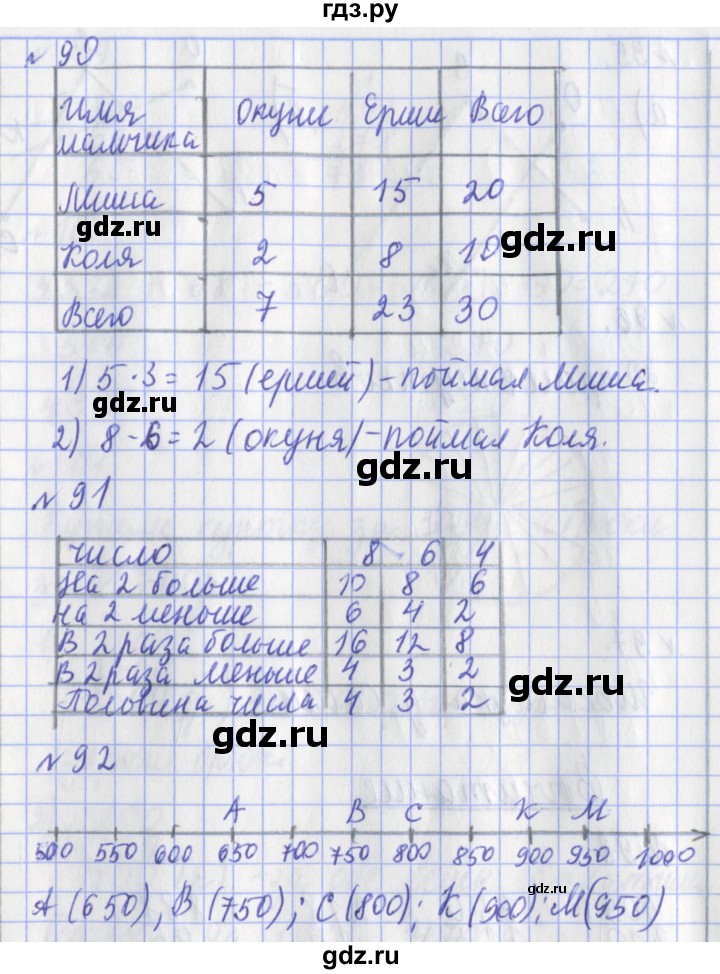 гдз.ру
№ 90
Имя мальчика Окуни Ерши Всего
Миша 5 15 20
gdz.ru
gdz.ru
Коля 2 8 10
Всего 7 23 30
1) 5 · 3 = 15 (ершей) – поймал Миша.
gdz.ru
2) 8 - 6 = 2 (окуня) – поймал Коля.
gdz.ru
№ 91
Число 8 6 4
На 2 больше 10 8 6
На 2 меньше 6 4 2
В 2 раза больше 16 12 8
В 2 раза меньше 4 3 2
gdz.ru
Половина числа 4 3 2
gdz.ru
№ 92
A B C K M
500 550 600 650 700 750 800 850 900 950 1000
gdz.ru
A (650), B (750); C (800); K (900); M (950)
gdz.ru